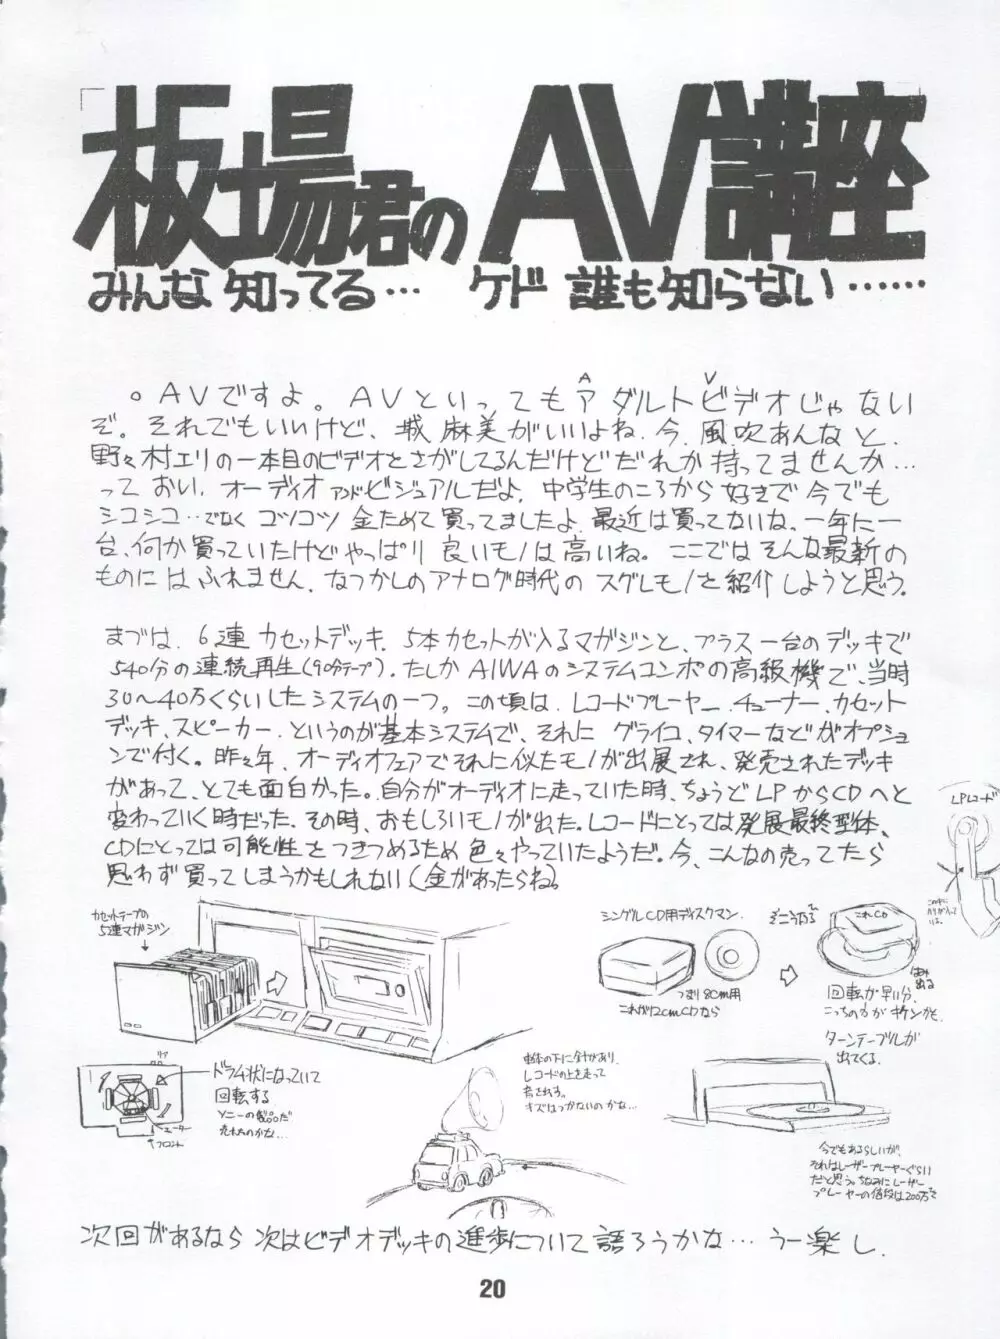 「板場君のAV講座」
みんな知ってる… ケド 誰も知らない……
。AVですよ。AVといってもアダルトビデオじゃない
A V
ぞ。それでもいいけど、城麻美がいいよね、今、風吹あんなと、
野々村エリの一本目のビデオとさがしてるんだけどだれか持ってませんか…
っておい、オーディオアンドビジュアルだよ。中学生のころから好きで今でも
シコシコ…でなくコツコツ金ためて買ってましたよ、最近は買ってないな、一年に一
台、何か買っていたけどやっぱり良いモノは高いね。ここではそんな最新の
ものにはふれません、なつかしのアナログ時代のスグレモノを紹介しようと思う。
まづは、6連カセットデッキ、5本カセットが入るマガジンと、プラス一台のデッキで
540分の連続再生(90分テープ)、たしかAIWAのシステムコンポの高級機で、当時
30〜40万くらいしたシステムの一つ。この頃は、レコードプレーヤー、チューナー、カセット
デッキ、スピーカー、というのが基本システムで、それにグライコ、タイマーなどがオプショ
ンで付く。昨々年、オーディオフェアでそれに似たモノが出展され、発売されたデッキ
があって、とても面白かった。自分がオーディオに走っていた時、ちょうどLPからCDへと
変わっていく時だった、その時、おもしろいモノが出た。レコードにとっては発展最終型体、
CDにとっては可能性をつきつめるため色々やっていたようだ。今、こんなの売ってたら
思わず買ってしまうかもしれない(金があったらね)。
LPレコード
この中に
ハリが入って
いる。
カセットテープの
5連マガジン
シングルCD用ディスクマン
つまり8cm用
これが12cmCDなら
そこうなる
これCD
はみ
出る
回転が早い分、
こっちの方がオドシグセ
ターンテーブルが
出てくる。
リア
モーター
フロント
ドラム状になっていて
回転する
ソニーの製品だ
売れたのかな…
車体の下に針があり、
レコードの上を走って
音を出す。
キズはつかないのかな…
今でもあるらしいが、
それはレーザープレーヤーぐらい
だと思う。ちなみにレーザー
プレーヤーの値段は200万で
次回があるなら次はビデオデッキの進歩について語ろうかな… うー楽し、
20